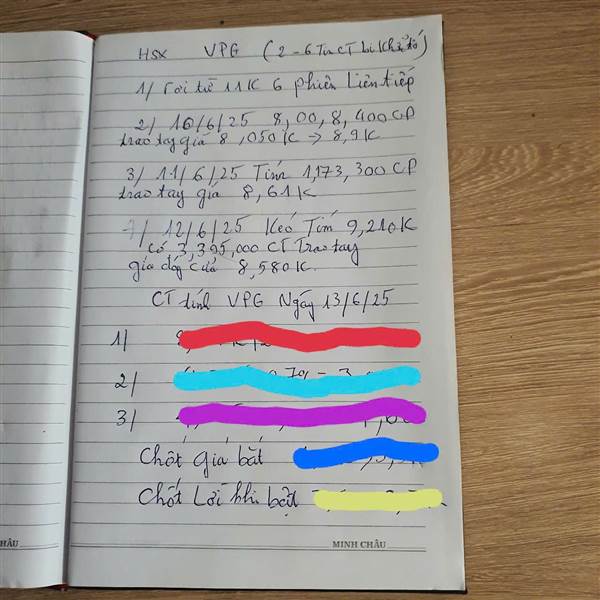 HSX VPG (2-6 Tin CT bị Khởi tố)
1/ rơi từ 11K 6 phiên Liên tiếp
2/ 10/6/25 8,00,8,400CP
trao tay giá 8,050K → 8,9K
3/ 11/6/25 Tím 1,173,300CP
trao tay giá 8,61K
4/ 12/6/25 Keó Tím 9,210K
có 3,395,000 CT Trao tay
giá đóng cửa 8,580K.
CT tính VPG Ngày 13/6/25
1/
2/
3/
Chốt giá bắt
Chốt Lời khi bật
HÂU
MINH CHÂU